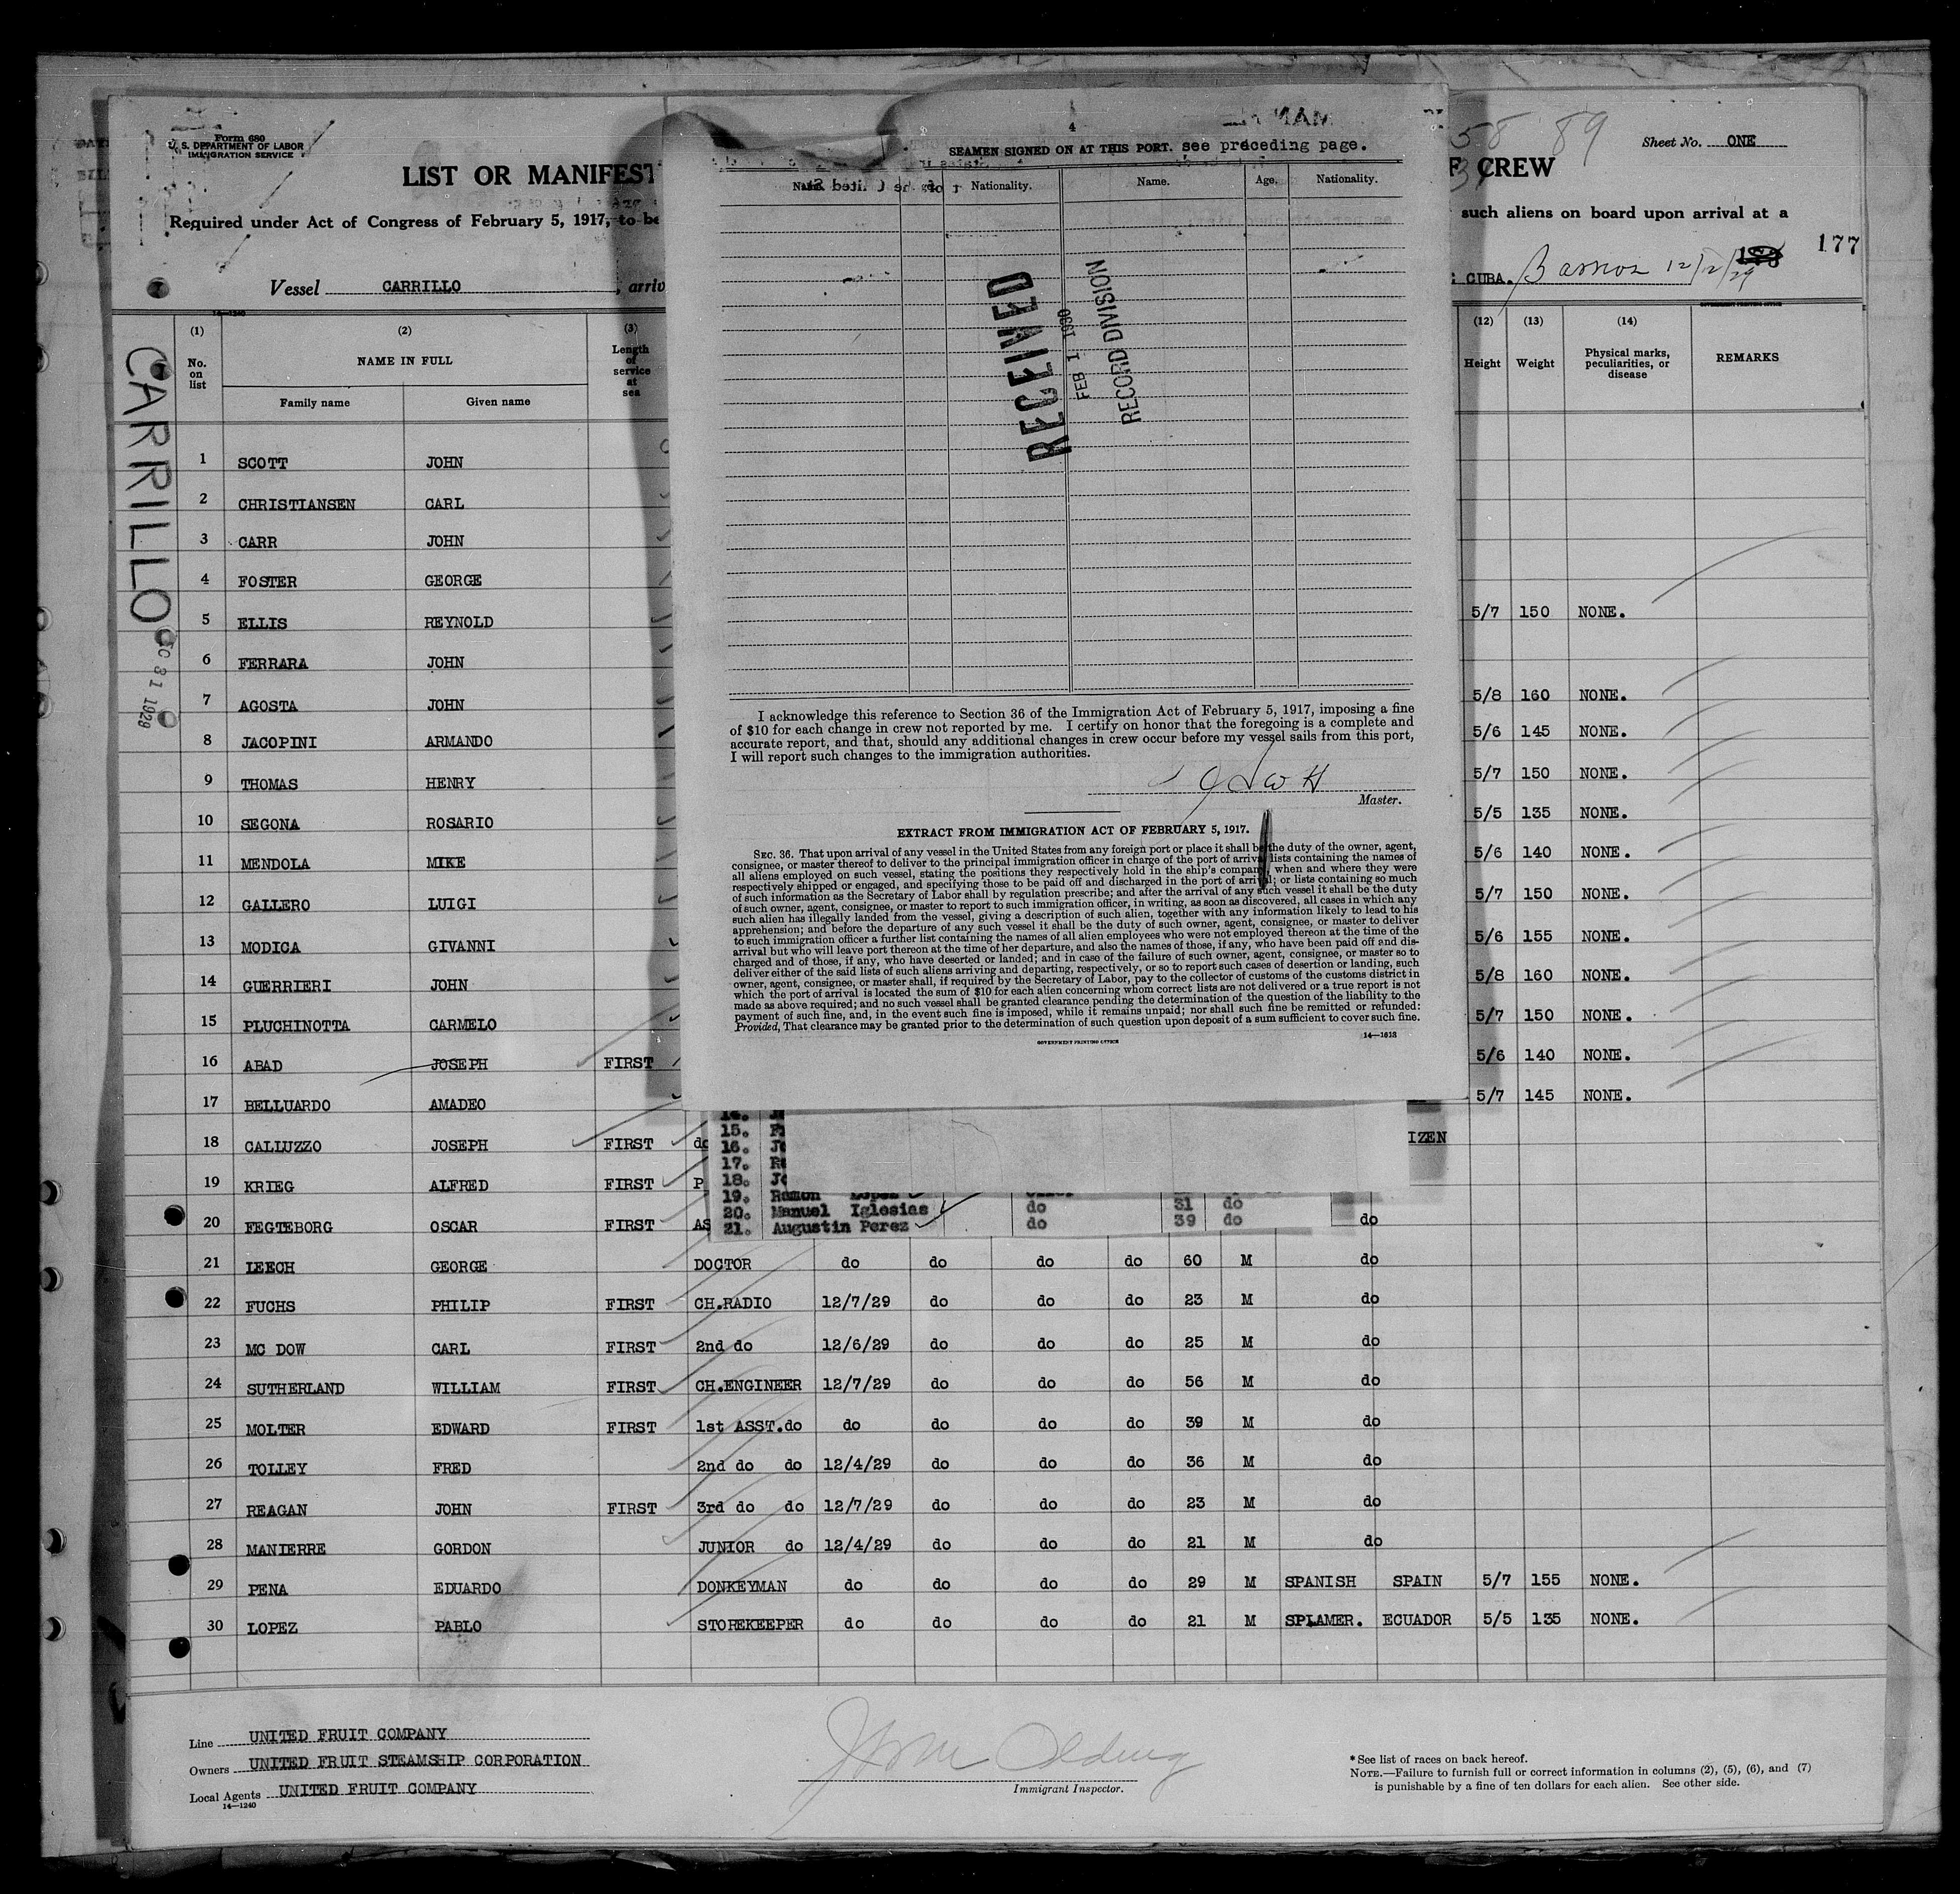 Form 680
U. S. DEPARTMENT OF LABOR
IMMIGRATION SERVICE
LIST OR MANIFEST
F CREW
58 89
Sheet No. ONE
Required under Act of Congress of February 5, 1917, to be
such aliens on board upon arrival at a
177
Vessel CARRILLO, arriv
CUBA. Barrios 12/12/29
14—1240
GOVERNMENT PRINTING OFFICE
CARRILLO
1929
(1) (2) (3) (12) (13) (14)
No. on list NAME IN FULL Length of service at sea Height Weight Physical marks, peculiarities, or disease REMARKS
Family name Given name
1 SCOTT JOHN
2 CHRISTIANSEN CARL
3 CARR JOHN
4 FOSTER GEORGE
5 ELLIS REYNOLD 5/7 150 NONE.
6 FERRARA JOHN
7 AGOSTA JOHN 5/8 160 NONE.
8 JACOPINI ARMANDO 5/6 145 NONE.
9 THOMAS HENRY 5/7 150 NONE.
10 SEGONA ROSARIO 5/5 135 NONE.
11 MENDOLA MIKE 5/6 140 NONE.
12 GALLERO LUIGI 5/7 150 NONE.
13 MODICA GIVANNI 5/6 155 NONE.
14 GUERRIERI JOHN 5/8 160 NONE.
15 PLUCHINOTTA CARMELO 5/7 150 NONE.
16 ABAD JOSEPH FIRST 5/6 140 NONE.
17 BELLUARDO AMADEO 5/7 145 NONE.
18 CALLUZZO JOSEPH FIRST do IZEN
19 KRIEG ALFRED FIRST P
20 FEGTEBORG OSCAR FIRST AS do
21 LEECH GEORGE DOCTOR do do do do 60 M do
22 FUCHS PHILIP FIRST CH.RADIO 12/7/29 do do do 23 M do
23 MC DOW CARL FIRST 2nd do 12/6/29 do do do 25 M do
24 SUTHERLAND WILLIAM FIRST CH.ENGINEER 12/7/29 do do do 56 M do
25 MOLTER EDWARD FIRST 1st ASST.do do do do do 39 M do
26 TOLLEY FRED 2nd do do 12/4/29 do do do 36 M do
27 REAGAN JOHN FIRST 3rd do do 12/7/29 do do do 23 M do
28 MANIERRE GORDON JUNIOR do 12/4/29 do do do 21 M do
29 PENA EDUARDO DONKEYMAN do do do do 29 M SPANISH SPAIN 5/7 155 NONE.
30 LOPEZ PABLO STOREKEEPER do do do do 21 M SPLAMER. ECUADOR 5/5 135 NONE.
Line UNITED FRUIT COMPANY
Owners UNITED FRUIT STEAMSHIP CORPORATION
Local Agents UNITED FRUIT COMPANY
14—1240
Immigrant Inspector.
*See list of races on back hereof.
NOTE.—Failure to furnish full or correct information in columns (2), (5), (6), and (7)
is punishable by a fine of ten dollars for each alien. See other side.
4
SEAMEN SIGNED ON AT THIS PORT. see preceding page.
Nationality. Name. Age. Nationality.
RECEIVED
FEB 1 1930
RECORD DIVISION
I acknowledge this reference to Section 36 of the Immigration Act of February 5, 1917, imposing a fine
of $10 for each change in crew not reported by me. I certify on honor that the foregoing is a complete and
accurate report, and that, should any additional changes in crew occur before my vessel sails from this port,
I will report such changes to the immigration authorities.
Master.
EXTRACT FROM IMMIGRATION ACT OF FEBRUARY 5, 1917.
SEC. 36. That upon arrival of any vessel in the United States from any foreign port or place it shall be the duty of the owner, agent,
consignee, or master thereof to deliver to the principal immigration officer in charge of the port of arrival lists containing the names of
all aliens employed on such vessel, stating the positions they respectively hold in the ship's company, when and where they were
respectively shipped or engaged, and specifying those to be paid off and discharged in the port of arrival; or lists containing so much
of such information as the Secretary of Labor shall by regulation prescribe; and after the arrival of any such vessel it shall be the duty
of such owner, agent, consignee, or master to report to such immigration officer, in writing, as soon as discovered, all cases in which any
such alien has illegally landed from the vessel, giving a description of such alien, together with any information likely to lead to his
apprehension; and before the departure of any such vessel it shall be the duty of such owner, agent, consignee, or master to deliver
to such immigration officer a further list containing the names of all alien employees who were not employed thereon at the time of the
arrival but who will leave port thereon at the time of her departure, and also the names of those, if any, who have been paid off and dis-
charged and of those, if any, who have deserted or landed; and in case of the failure of such owner, agent, consignee, or master so to
deliver either of the said lists of such aliens arriving and departing, respectively, or so to report such cases of desertion or landing, such
owner, agent, consignee, or master shall, if required by the Secretary of Labor, pay to the collector of customs of the customs district in
which the port of arrival is located the sum of $10 for each alien concerning whom correct lists are not delivered or a true report is not
made as above required; and no such vessel shall be granted clearance pending the determination of the question of the liability to the
payment of such fine, and, in the event such fine is imposed, while it remains unpaid; nor shall such fine be remitted or refunded:
Provided, That clearance may be granted prior to the determination of such question upon deposit of a sum sufficient to cover such fine.
GOVERNMENT PRINTING OFFICE
14—1618
15.
16.
17.
18.
19. Ramon Lopez
20. Manuel Iglesias do 31 do
21. Augustin Perez do 39 do